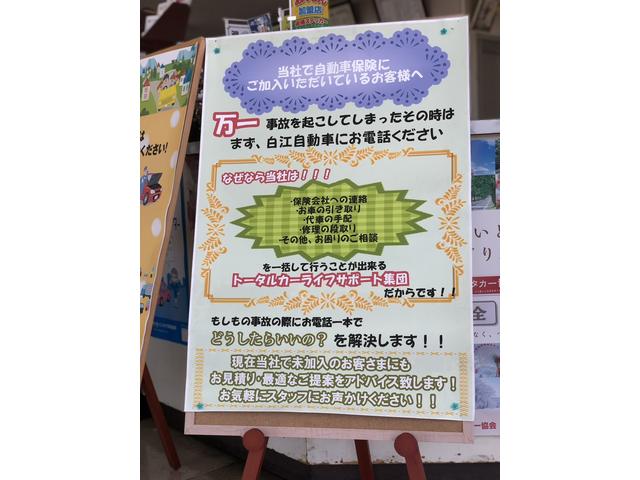 加盟店
当社で自動車保険に
ご加入いただいているお客様へ
万一 事故を起こしてしまったその時は
まず、白江自動車にお電話ください
なぜなら当社は！！！
・保険会社への連絡
・お車の引き取り
・代車の手配
・修理の段取り
・その他、お困りのご相談
を一括して行うことが出来る
トータルカーライフサポート集団
だからです！！
もしもの事故の際にお電話一本で
どうしたらいいの？ を解決します！！
現在当社で未加入のお客さまにも
お見積り・最適なご提案をアドバイス致します！
お気軽にスタッフにお声かけください！！
ください!
全
ー協会